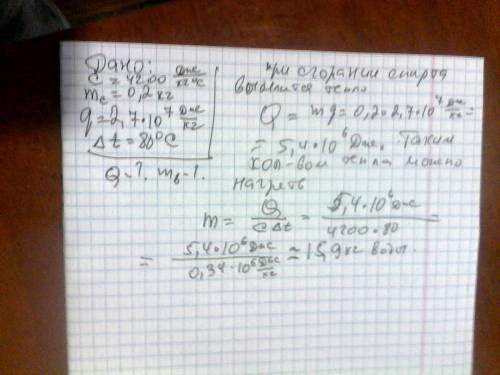 Дано:
c = 4200 Дж/кг°C
mc = 0,2 кг
q = 2,7•10⁷ Дж/кг
Δt = 80°C
Q - ?. mв - ?.
При сгорании спирта
выделится тепло
Q = mq = 0,2•2,7•10⁷ Дж/кг =
= 5,4•10⁶ Дж. Таким
кол-вом тепла можно
нагреть
m = Q/cΔt = 5,4•10⁶ Дж/4200•80 =
= 5,4•10⁶ Дж/0,34•10⁶ Дж/кг ≈ 15,9 кг воды.